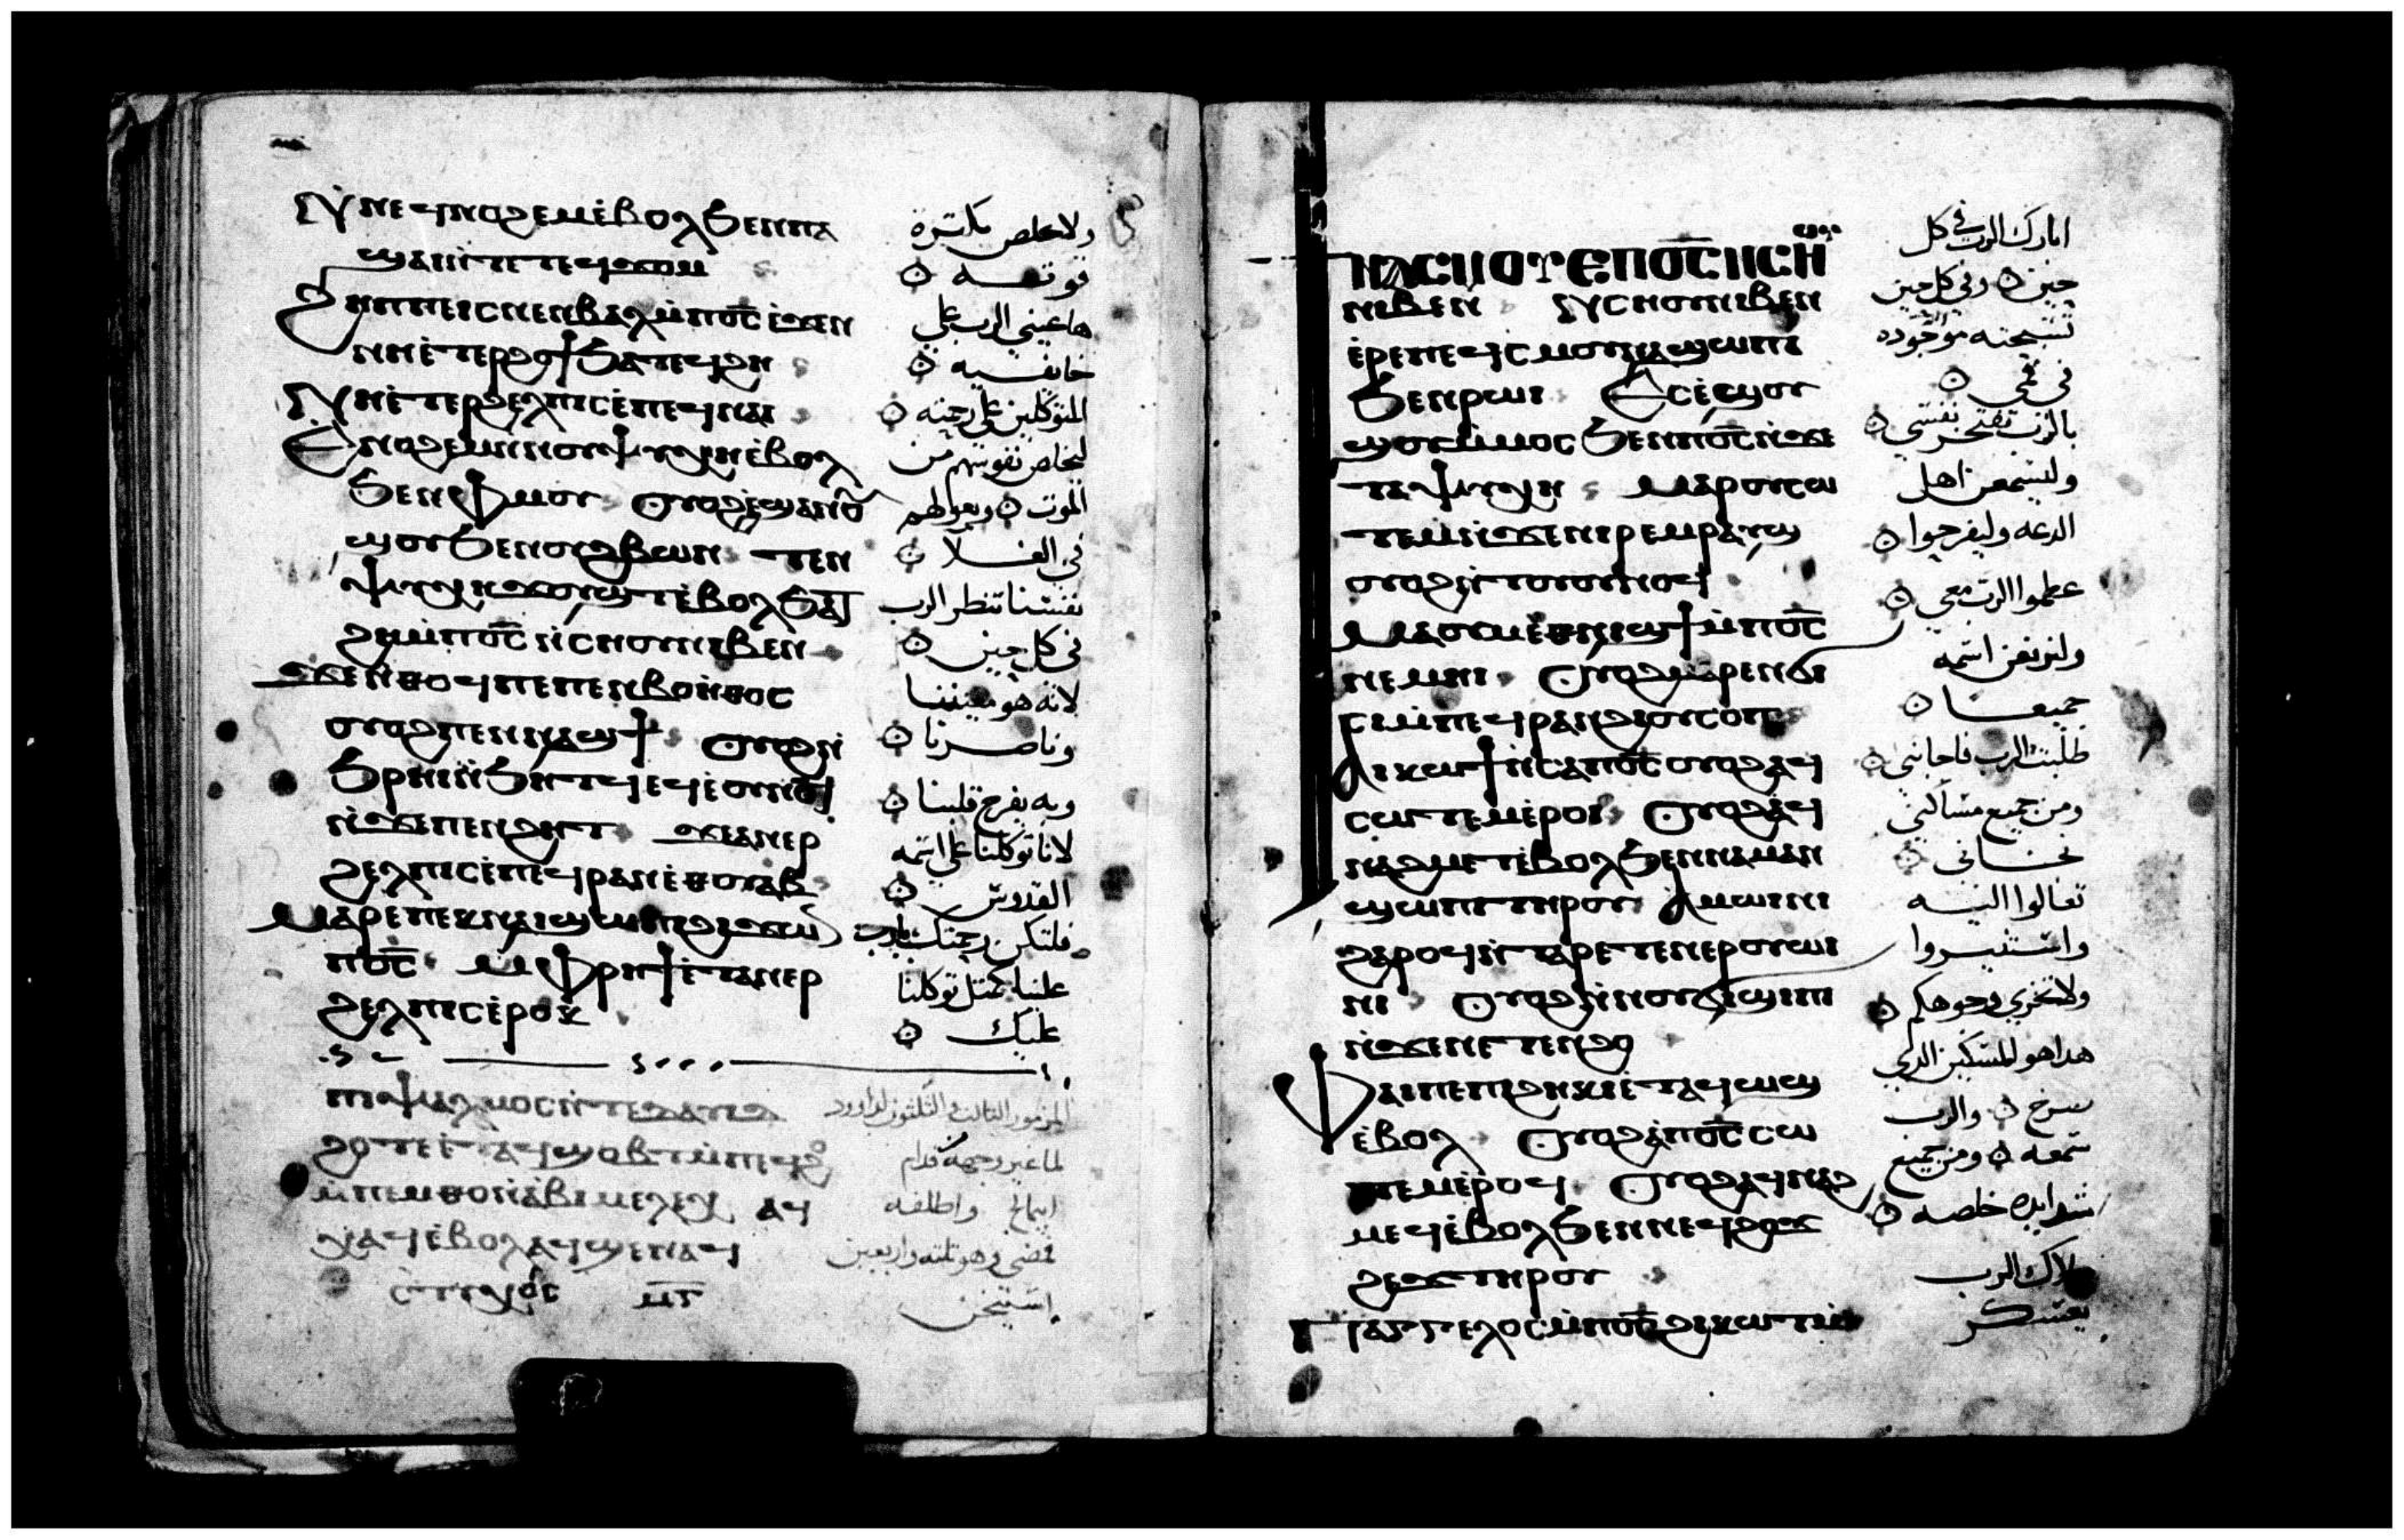 Ⲛ̀ⲛⲉϥⲛⲟϩⲉⲙⲉ̀ⲃⲟⲗϧⲉⲛⲡⲁ
ϣⲁⲓⲛ̀ⲧⲉⲧⲉϥϫⲟⲙ
Ϩⲏⲡⲡⲉⲓⲥⲛⲉⲛⲃⲁⲗⲙ̀ⲡⲟ̅ⲥ̅ⲓ̀ϫⲉⲛ
ⲛⲏⲉ̀ⲧⲉⲣϩⲟϯϧⲁⲧⲉϥϩⲏ
Ⲛⲏⲉ̀ⲧⲉⲣϩⲉⲗⲡⲓⲥⲉ̀ⲡⲉϥⲛⲁⲓ
Ⲉⲛⲟϩⲉⲙⲛ̀ⲛⲟⲩⲯⲩⲭⲏⲉ̀ⲃⲟⲗ
ϧⲉⲛⲫⲙⲟⲩ Ⲟⲩⲟϩⲉ̀ϣⲁⲛⲟⲩ
ϣⲟⲩϧⲉⲛⲟⲩϩⲃⲱⲛ ⲧⲉⲛ
ⲯⲩⲭⲏϫⲟⲩϣⲧⲉ̀ⲃⲟⲗϧⲁϫ
ϩⲏⲙ̀ⲡⲟ̅ⲥ̅ⲛ̀ⲥⲏⲟⲩⲛⲓⲃⲉⲛ
ϫⲉⲛ̀ⲑⲟϥⲡⲉⲡⲉⲛⲃⲟⲏ̀ⲑⲟⲥ
ⲟⲩⲟϩⲡⲉⲛⲛⲁϣϯ Ⲟⲩⲟϩⲛ̀
ϧⲣⲏⲓⲛ̀ϧⲏⲧϥⲉϥⲉ̀ⲟⲩⲛⲟϥ
ⲛ̀ϫⲉⲡⲉⲛϩⲏⲧ ϫⲉⲁⲛⲉⲣ
ϩⲉⲗⲡⲓⲥⲉ̀ⲡⲉϥⲣⲁⲛⲉ̀ⲑⲟⲩⲁⲃ
Ⲙⲁⲣⲉⲡⲉⲕⲛⲁⲓϣⲱⲡⲓϩⲓϫⲱⲛ
ⲡⲟ̅ⲥ̅ ⲙ̀ⲫⲣⲏϯⲉ̀ⲧⲁⲛⲉⲣ
ϩⲉⲗⲡⲓⲥⲉ̀ⲣⲟⲕ
ⲡⲓⲯⲁⲗⲙⲟⲥⲛ̀ⲧⲉⲇⲁⲩⲓⲇ
ϩⲟⲧⲉⲉ̀ⲧⲁϥϣⲟⲃⲧⲙ̀ⲡⲉϥϩⲟ
ⲙ̀ⲡⲉⲙⲑⲟⲛ̀ⲁⲃⲓⲙⲉⲗⲉⲭ ⲁϥ
ⲭⲁϥⲉ̀ⲃⲟⲗⲁϥϣⲉⲛⲁϥ
ⲥⲧⲩⲭⲟⲥ ⲙ̅ⲅ̅
ولا يخلص بكترة
قوته
ها عيني الرب على
خايفيه
المتوكلين على رحمته
ليخلص نفوسهم من
الموت ويعولهم
في الغلا
نفسنا تنظر الرب
في كل حين
لانه هو معيننا
وناصرنا
وبه يفرح قلبنا
لانا توكلنا على اسمه
القدوس
فلتكن رحمتك يارب
علينا كمتل توكلنا
عليك
المزمور التالت والتلتون لداوود
لما غير وجهه قدام
ابيمالخ واطلقه
فمضى وهو تلته واربعين
استيخن
Ⲧⲛⲁⲥⲙⲟⲩⲉ̀ⲡⲟ̅ⲥ̅ⲛ̀ⲥⲏⲟⲩ
ⲛⲓⲃⲉⲛ Ⲛ̀ⲥⲏⲟⲩⲛⲓⲃⲉⲛ
ⲉ̀ⲣⲉⲡⲉϥⲥⲙⲟⲩⲛⲁϣⲱⲡⲓ
ϧⲉⲛⲣⲱⲓ Ⲉⲥⲉ̀ϣⲟⲩ
ϣⲟⲩⲙ̀ⲙⲟⲥϧⲉⲛⲡⲟ̅ⲥ̅ⲛ̀ϫⲉ
ⲧⲁⲯⲩⲭⲏ Ⲙⲁⲣⲟⲩⲥⲱ
ⲧⲉⲙⲛ̀ϫⲉⲛⲓⲣⲉⲙⲣⲁⲩϣ
ⲟⲩⲟϩⲛ̀ⲧⲟⲩⲟⲩⲛⲟϥ
Ⲙⲁⲟⲩⲙⲉⲑⲛⲓϣϯⲙ̀ⲡⲟ̅ⲥ̅
ⲛⲉⲙⲏⲓ Ⲟⲩⲟϩⲙⲁⲣⲉⲛϭⲓ
ⲥⲓⲙ̀ⲡⲉϥⲣⲁⲛϩⲓⲟⲩⲥⲟⲡ
Ⲁⲓⲕⲱϯⲛ̀ⲥⲁⲡⲟ̅ⲥ̅ⲟⲩⲟϩⲁϥ
ⲥⲱⲧⲉⲙⲉ̀ⲣⲟⲓ Ⲟⲩⲟϩⲁϥ
ⲛⲁϩⲙⲉⲧⲉ̀ⲃⲟⲗϧⲉⲛⲛⲁⲙⲁⲛ
ϣⲱⲡⲓⲧⲏⲣⲟⲩ Ⲁⲙⲱⲓⲛⲓ
ϩⲁⲣⲟϥⲛ̀ⲧⲁⲣⲉⲧⲉⲛⲉⲣⲟⲩⲱⲓ
ⲛⲓ Ⲟⲩⲟϩⲛ̀ⲛⲟⲩϭⲓϣⲓⲡⲓ
ⲛ̀ϫⲉⲛⲉⲧⲉⲛϩⲟ
Ⲫⲁⲓⲡⲉⲡⲓϩⲏⲕⲓⲉ̀ⲧⲁϥⲱϣ
ⲉ̀ⲃⲟⲗ Ⲟⲩⲟϩⲁⲡⲟ̅ⲥ̅ⲥⲱ
ⲧⲉⲙⲉ̀ⲣⲟϥ Ⲟⲩⲟϩⲁϥⲛⲁϩ
ⲙⲉϥⲉ̀ⲃⲟⲗϧⲉⲛⲛⲉϥϩⲟϫ
ϩⲉϫⲧⲏⲣⲟⲩ
Ⲡⲓⲁⲅⲅⲉⲗⲟⲥⲙ̀ⲡⲟ̅ⲥ̅ϩⲓⲕⲱϯ
ابارك الرب في كل
حين وفي كل حين
تسبحته موجوده
في فمي
بالرب تفتخر نفسي
وليسمعن اهل
الدعه وليفرحوا
عظموا الرب معي
ولنرفعن اسمه
جميعا
طلبت الرب فاجابني
ومن جميع مساكني
نجاني
تعالوا اليه
واستنيروا
ولا تخزى وجوهكم
هدا هو المسكين الدي
صرخ والرب
سمعه ومن جميع
شدايده خلصه
ملاك الرب
يعسكر